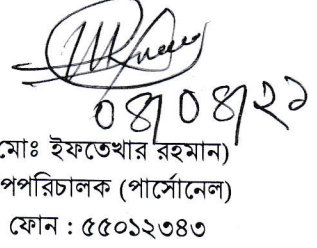 ০৪/০৪/২১
মোঃ ইফতেখার রহমান)
পপরিচালক (পার্সোনেল)
ফোন : ৫৫০১২৩৪৩